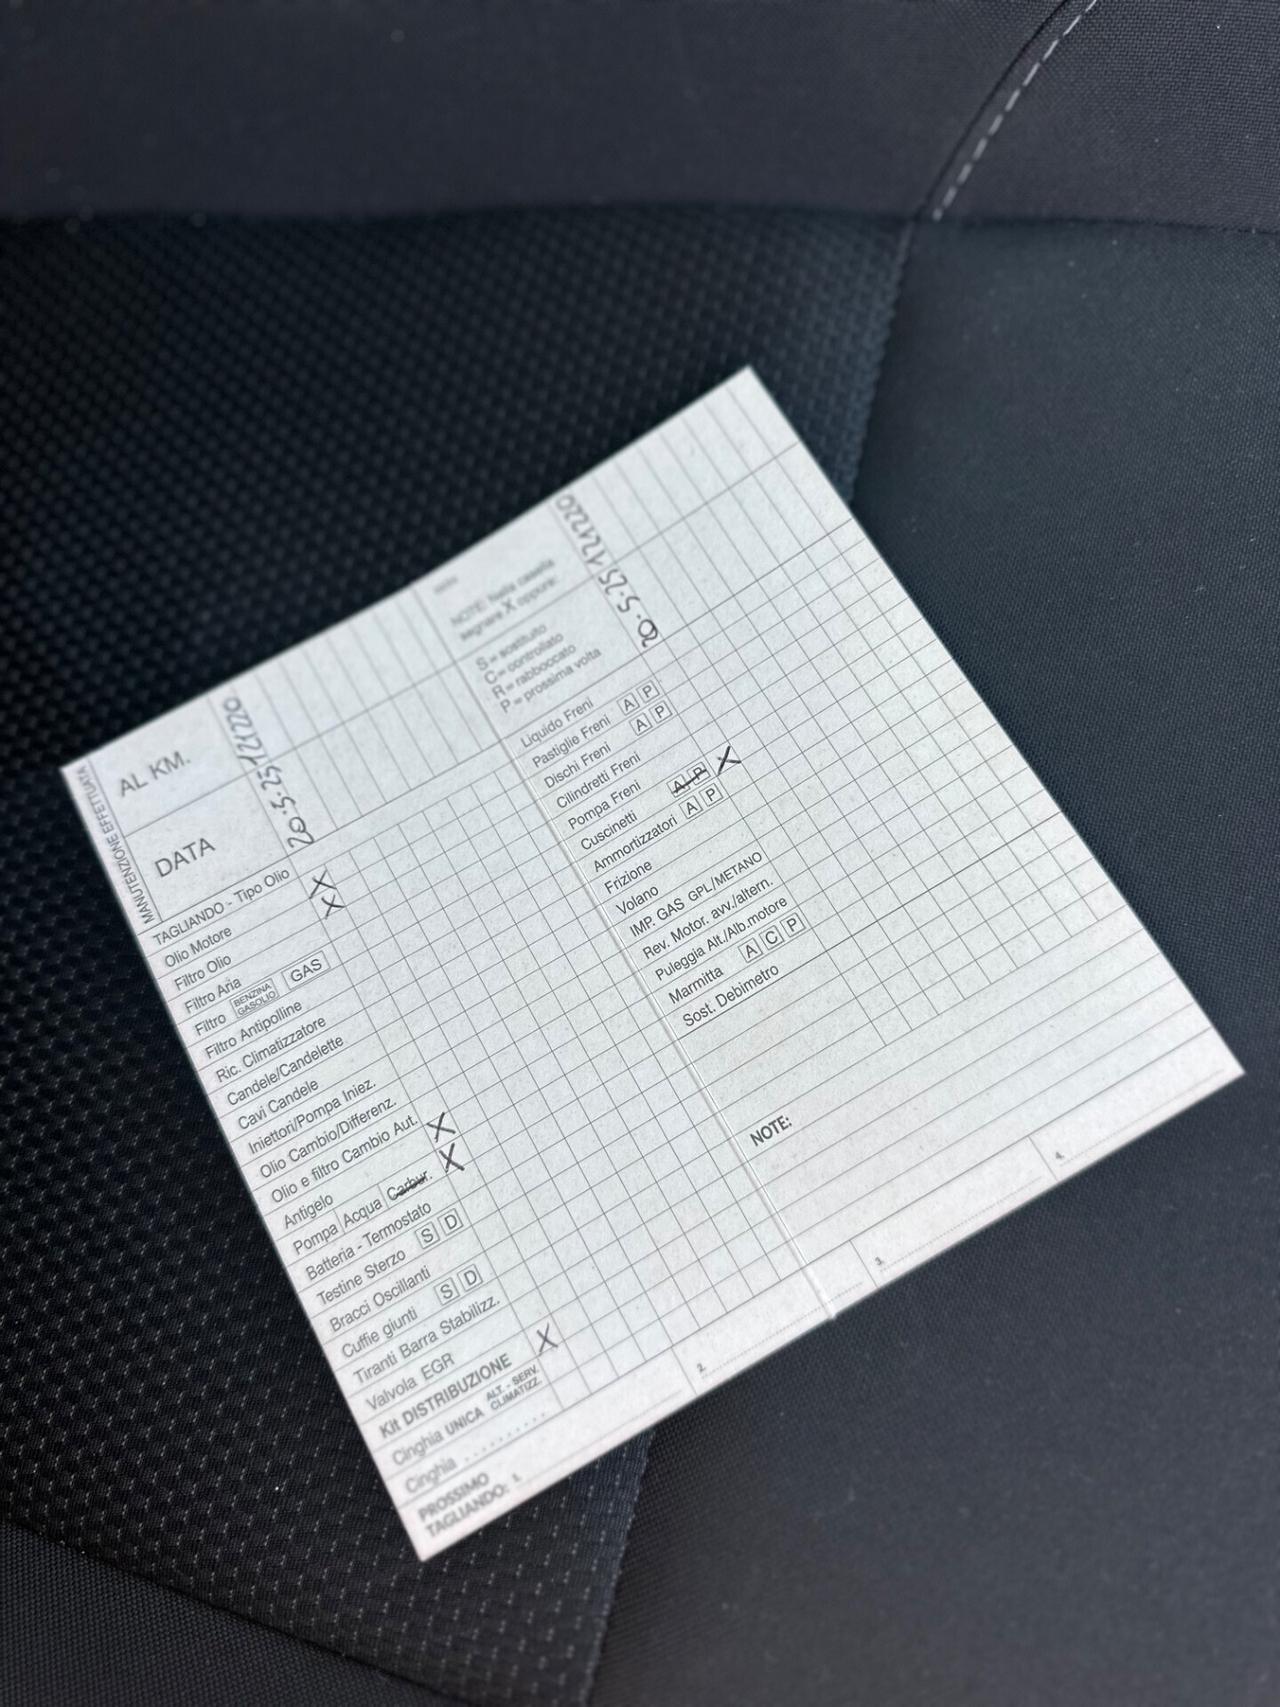 MANUTENZIONE EFFETTUATA
AL KM. 121220
DATA 20.5.25
TAGLIANDO - Tipo Olio
Olio Motore X
Filtro Olio X
Filtro Aria
Filtro BENZINA GASOLIO GAS
Filtro Antipolline
Ric. Climatizzatore
Candele/Candelette
Cavi Candele
Iniettori/Pompa Iniez.
Olio Cambio/Differenz.
Olio e filtro Cambio Aut.
Antigelo X
Pompa Acqua Carbur. X
Batteria - Termostato
Testine Sterzo S D
Bracci Oscillanti
Cuffie giunti S D
Tiranti Barra Stabilizz.
Valvola EGR
Kit DISTRIBUZIONE X
Cinghia UNICA ALT. - SERV. CLIMATIZZ.
Cinghia ..........
PROSSIMO
TAGLIANDO: 1.
2.
3.
4.
NOTE: Nella casella
segnare X oppure:
S = sostituito
C = controllato
R = rabboccato
P = prossima volta
121220
20.5.25
Liquido Freni
Pastiglie Freni A P
Dischi Freni A P
Cilindretti Freni
Pompa Freni
Cuscinetti A P X
Ammortizzatori A P
Frizione
Volano
IMP. GAS GPL/METANO
Rev. Motor. avv./altern.
Puleggia Alt./Alb.motore
Marmitta A C P
Sost. Debimetro
NOTE: